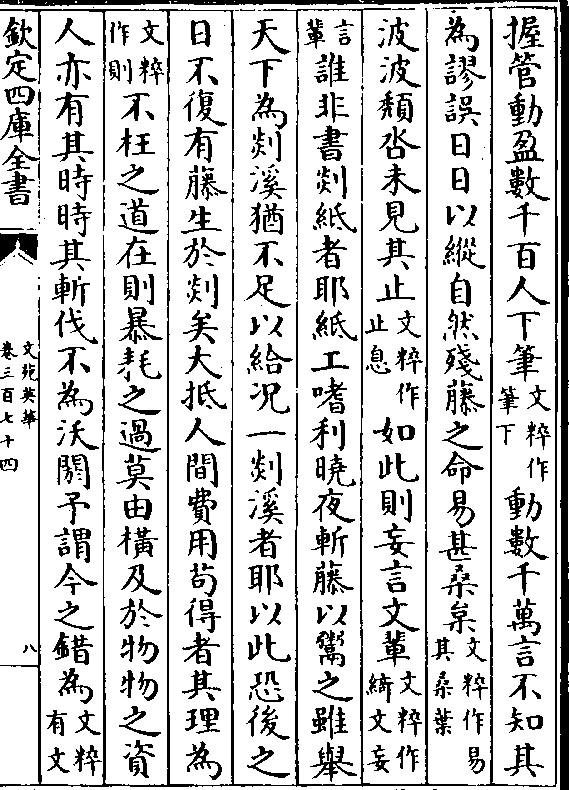 握管動盈數千百人下筆文粹作筆下動數千萬言不知其
為謬誤日日以縱自然殘藤之命易甚桑枲文粹作易其桑葉
波波頹沓未見其止文粹作止息如此則妄言文輩文粹作綺文妄
言輩誰非書剡紙者耶紙工嗜利曉夜斬藤以鬻之雖舉
天下為剡溪猶不足以給况一剡溪者耶以此恐後之
日不復有藤生於剡矣大抵人間費用苟得者其理為
文粹作則不枉之道在則暴耗之過莫由橫及於物物之資
人亦有其時時其斬伐不為夭閼予謂今之錯為文粹有文
欽定四庫全書
文苑英華
卷三百七十四
八